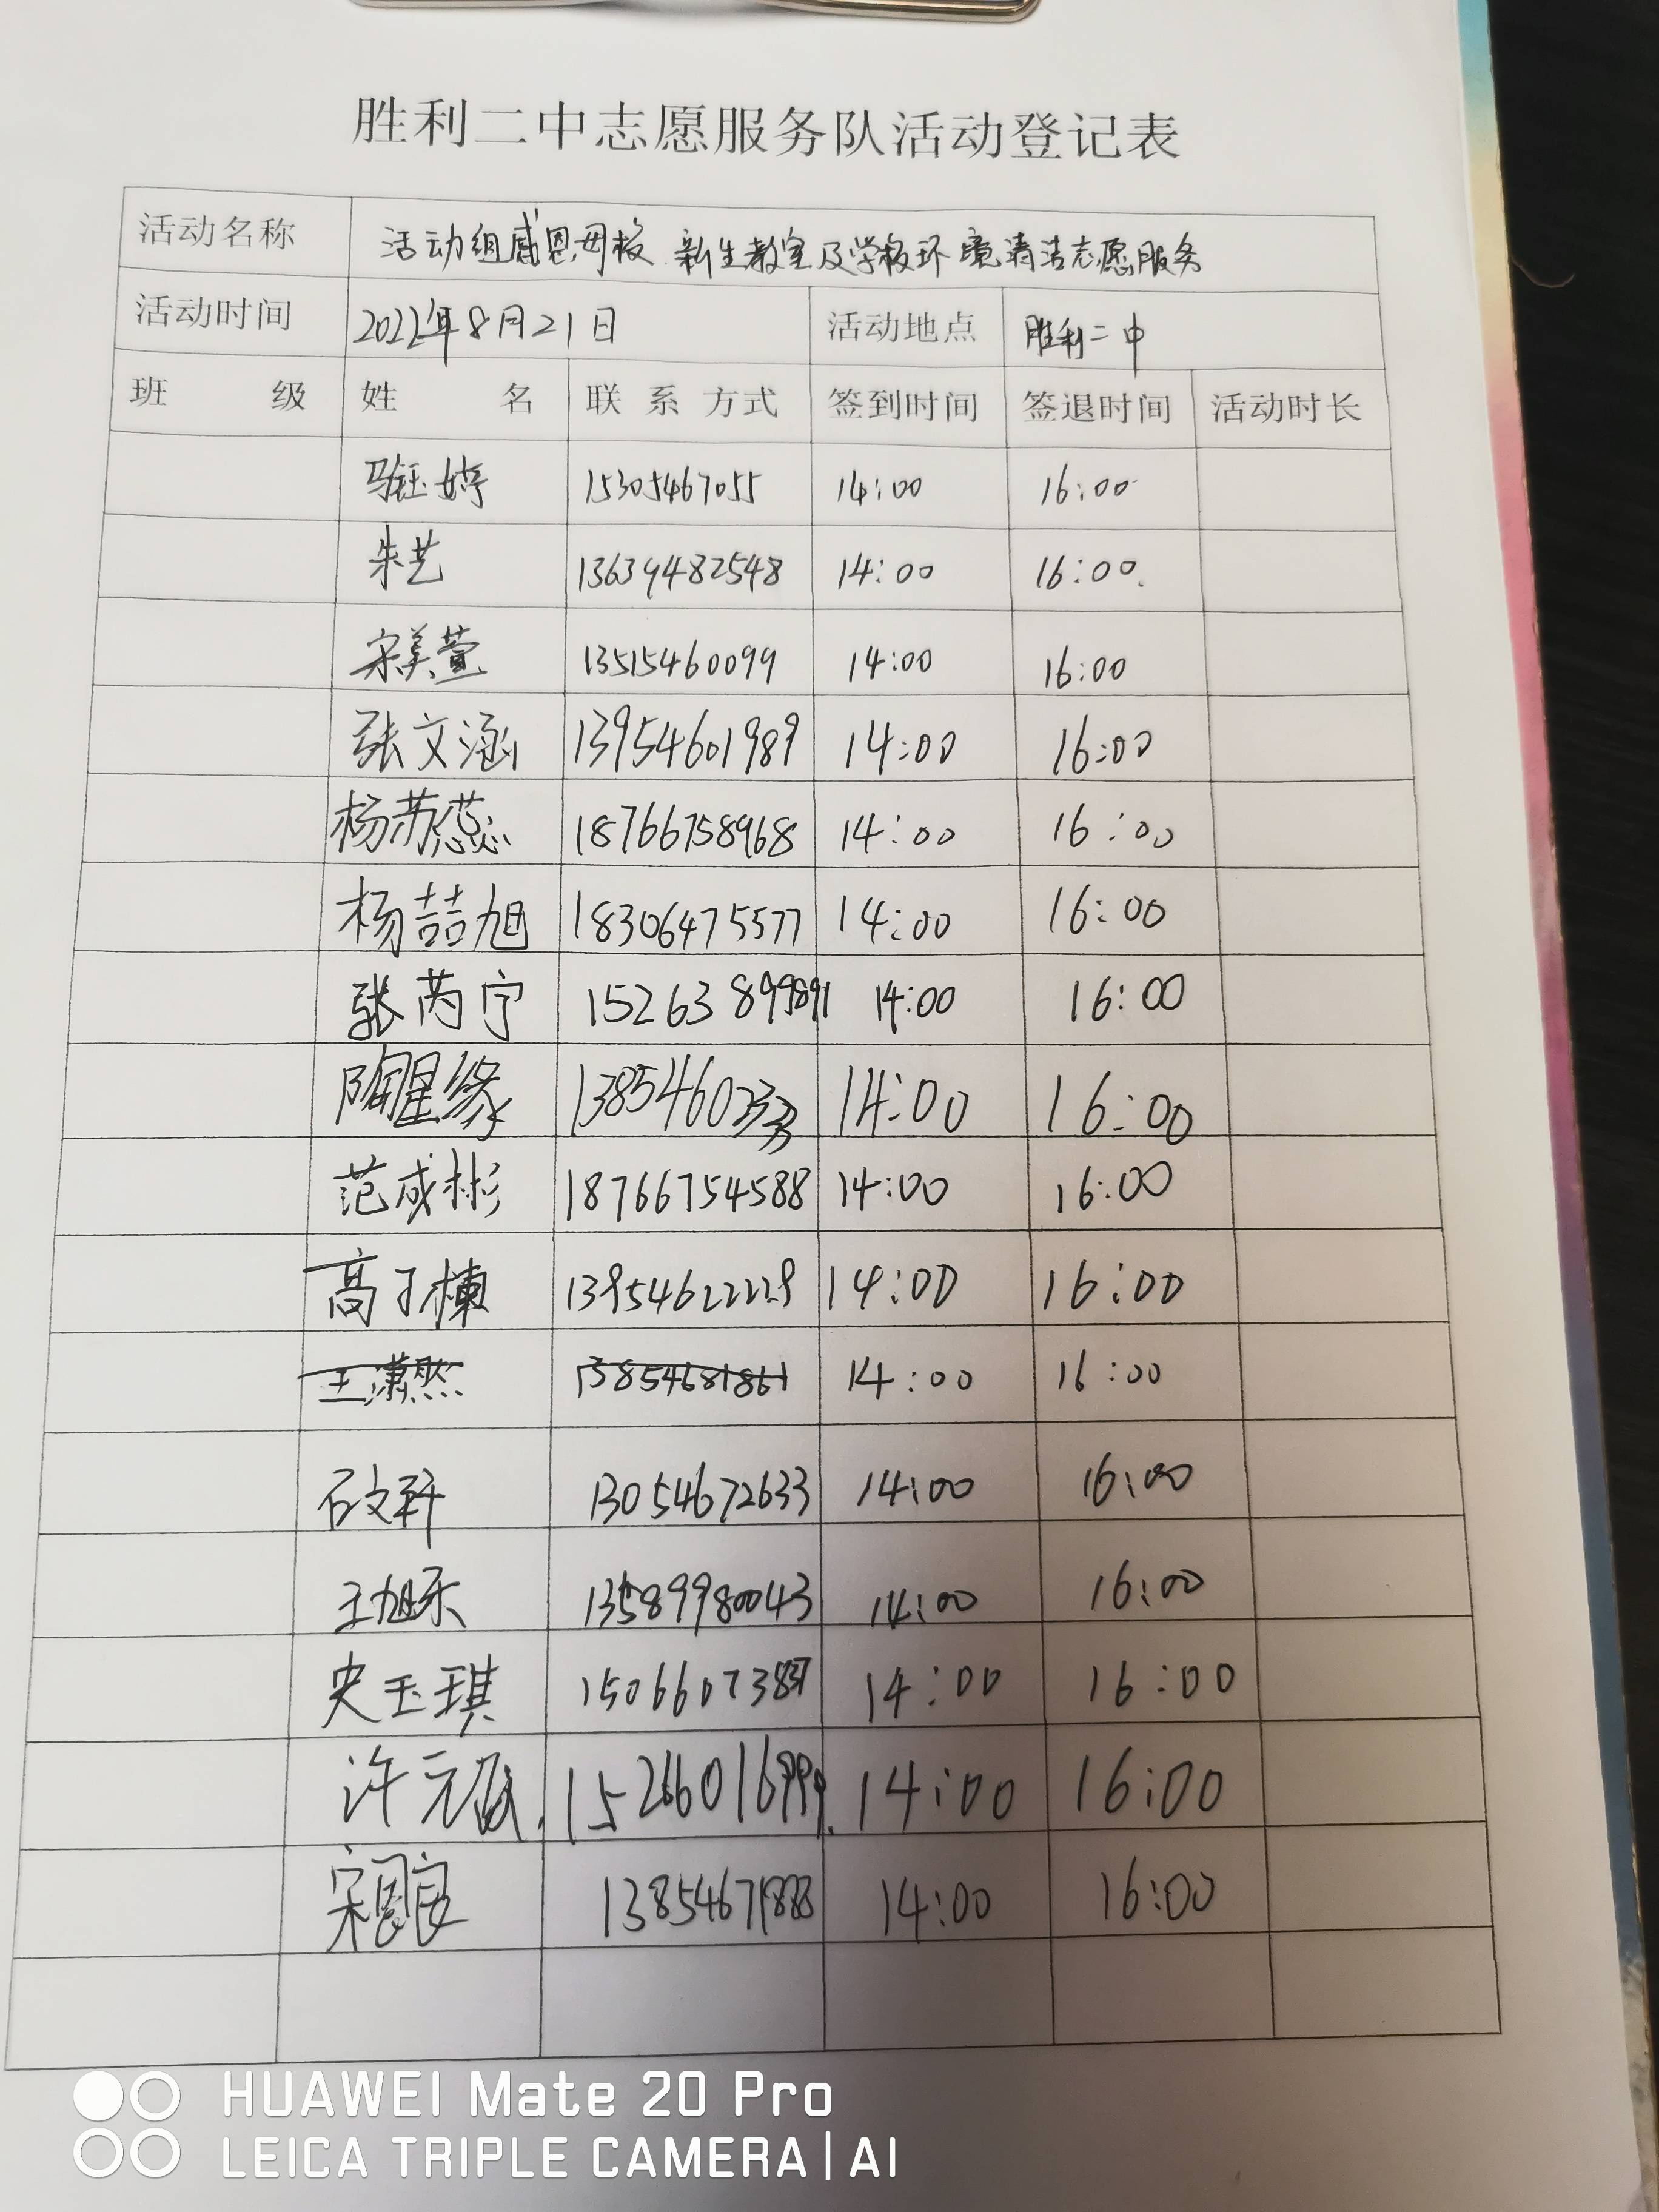 胜利二中志愿服务队活动登记表
活动名称 活动组感恩母校 新生教室及学校环境清洁志愿服务
活动时间 2022年8月21日 活动地点 胜利二中
班 级 姓 名 联 系 方式 签到时间 签退时间 活动时长
马钰婷 15305467055 14:00 16:00
朱艺 13639482548 14:00 16:00
宋美萱 13515460099 14:00 16:00
张文涵 13954601989 14:00 16:00
杨苏蕊 18766758968 14:00 16:00
杨喆旭 18306475577 14:00 16:00
张芮宁 14:00 16:00
陶星缘 14:00 16:00
范成彬 18766754588 14:00 16:00
高子棟 13954622229 14:00 16:00
王潇然 13854681861 14:00 16:00
石文轩 13054672633 14:00 16:00
王旭东 13589980043 14:00 16:00
史玉琪 14:00 16:00
许元 15266016999 14:00 16:00
宋 良 13854671888 14:00 16:00
HUAWEI Mate 20 Pro
LEICA TRIPLE CAMERA | AI